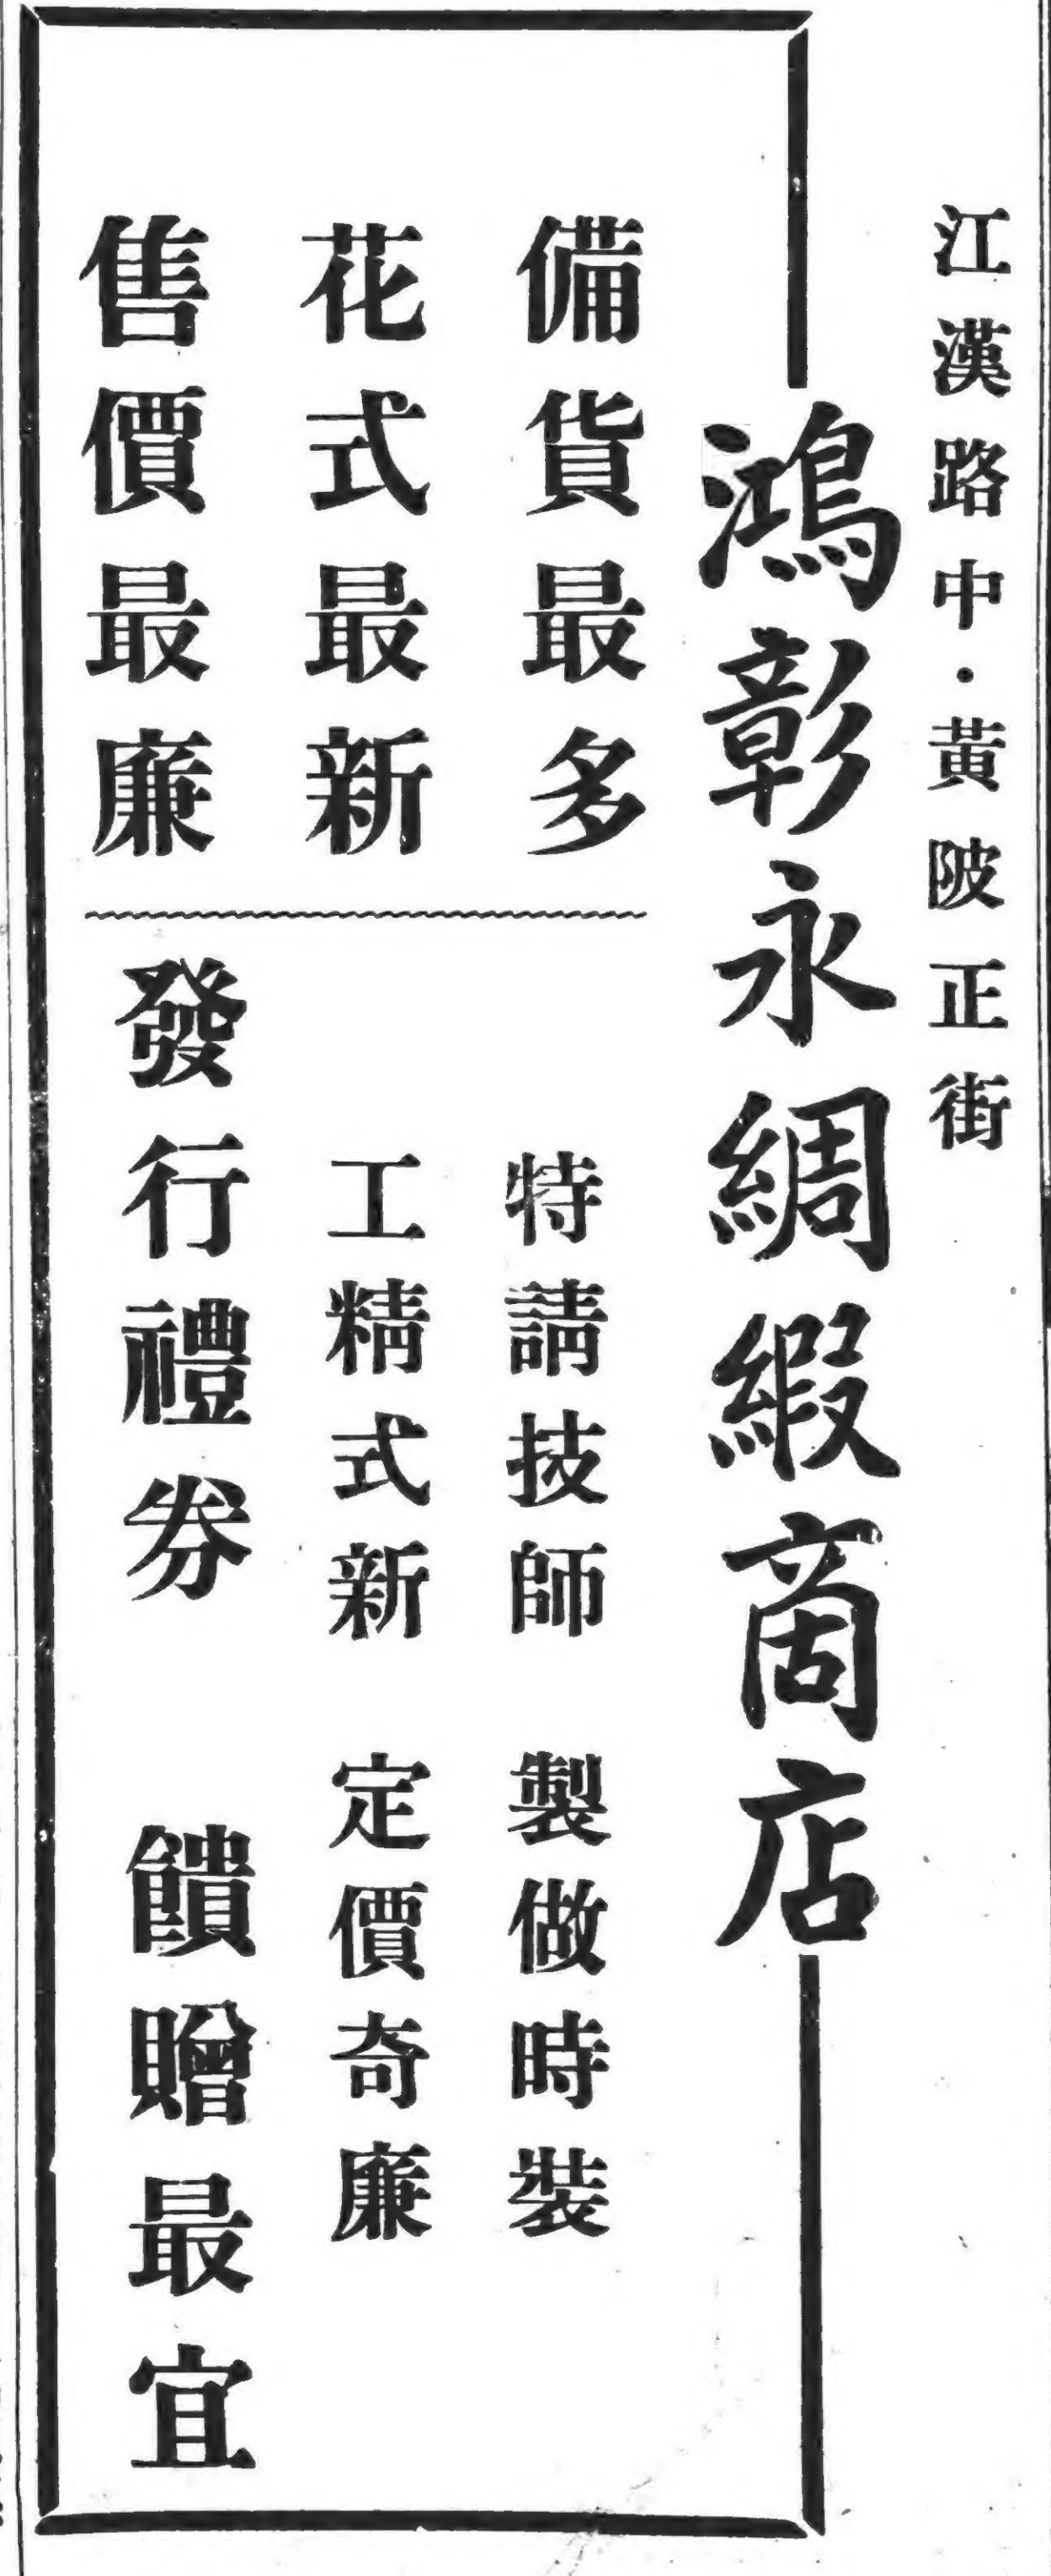 江漢路中·黃陂正街
鴻彰永綢緞商店
備貨最多
花式最新
售價最廉
特請技師 製做時裝
工精式新 定價奇廉
發行禮券 饋贈最宜